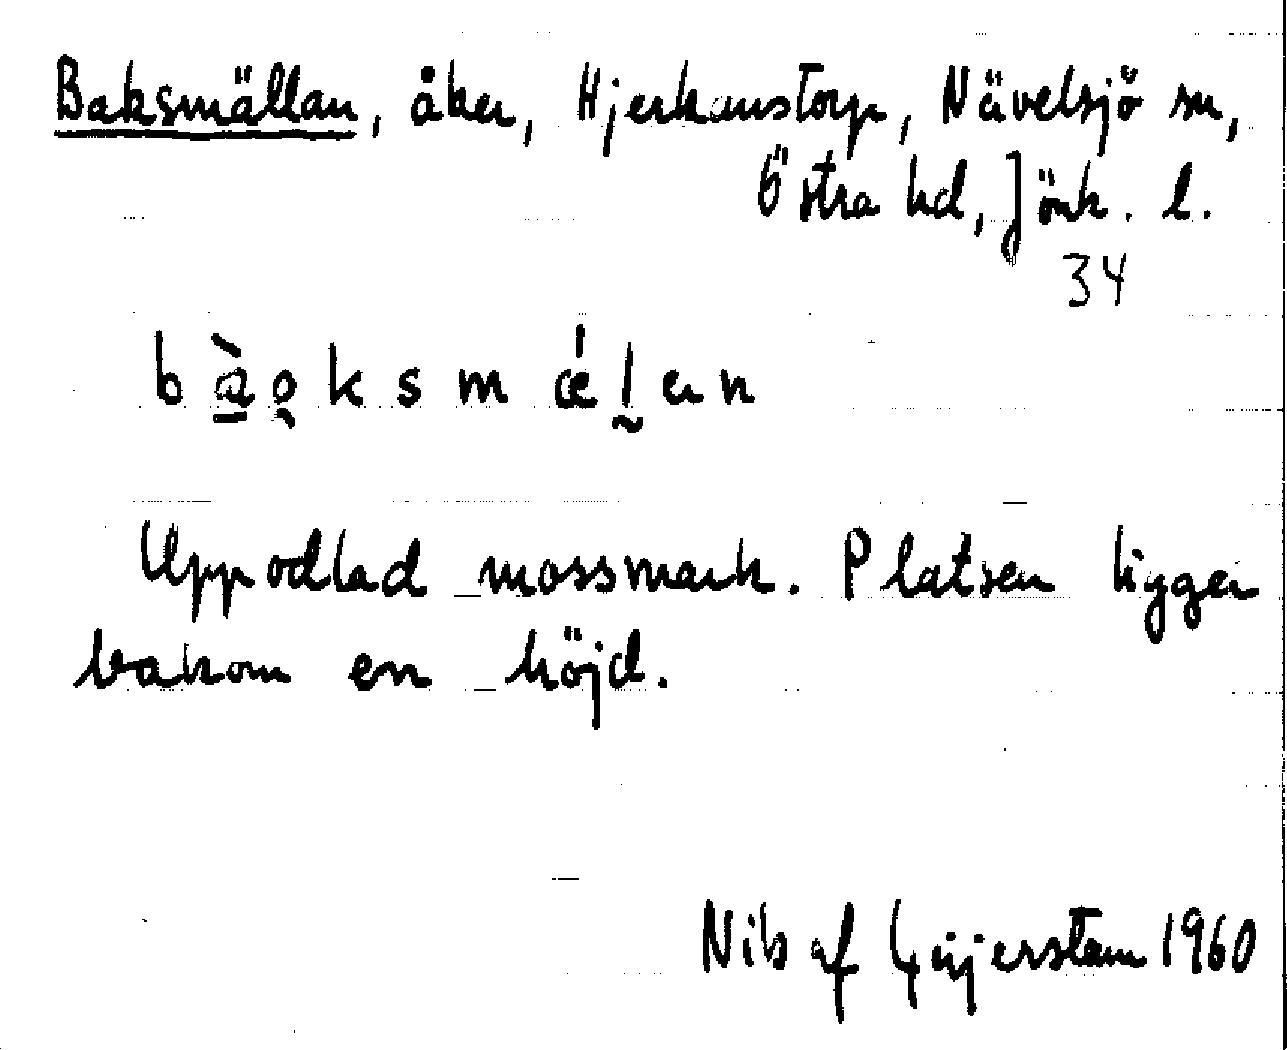 Baksmällan, åker, Hjerkanstorp, Nävelsjö sn,
Östra hd, Jönk. l.
34
b à̱ o̜ k s m ǽ l̰ a n
Uppodlad mossmark. Platsen ligger
bakom en höjd.
Nils af Geijerstam 1960